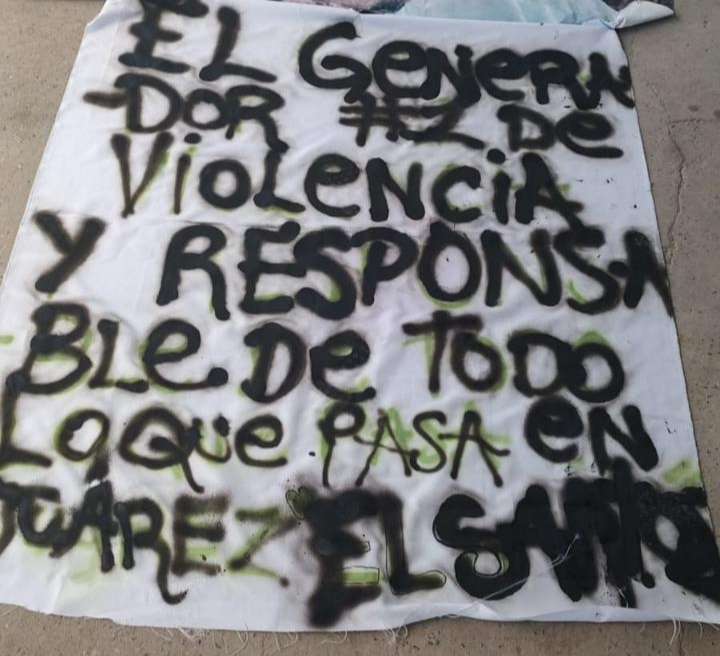 EL GENERA
-DOR #2 DE
VIOLENCIA
Y RESPONSA
BLE DE TODO
LO QUE PASA EN
JUÁREZ "EL SANTO